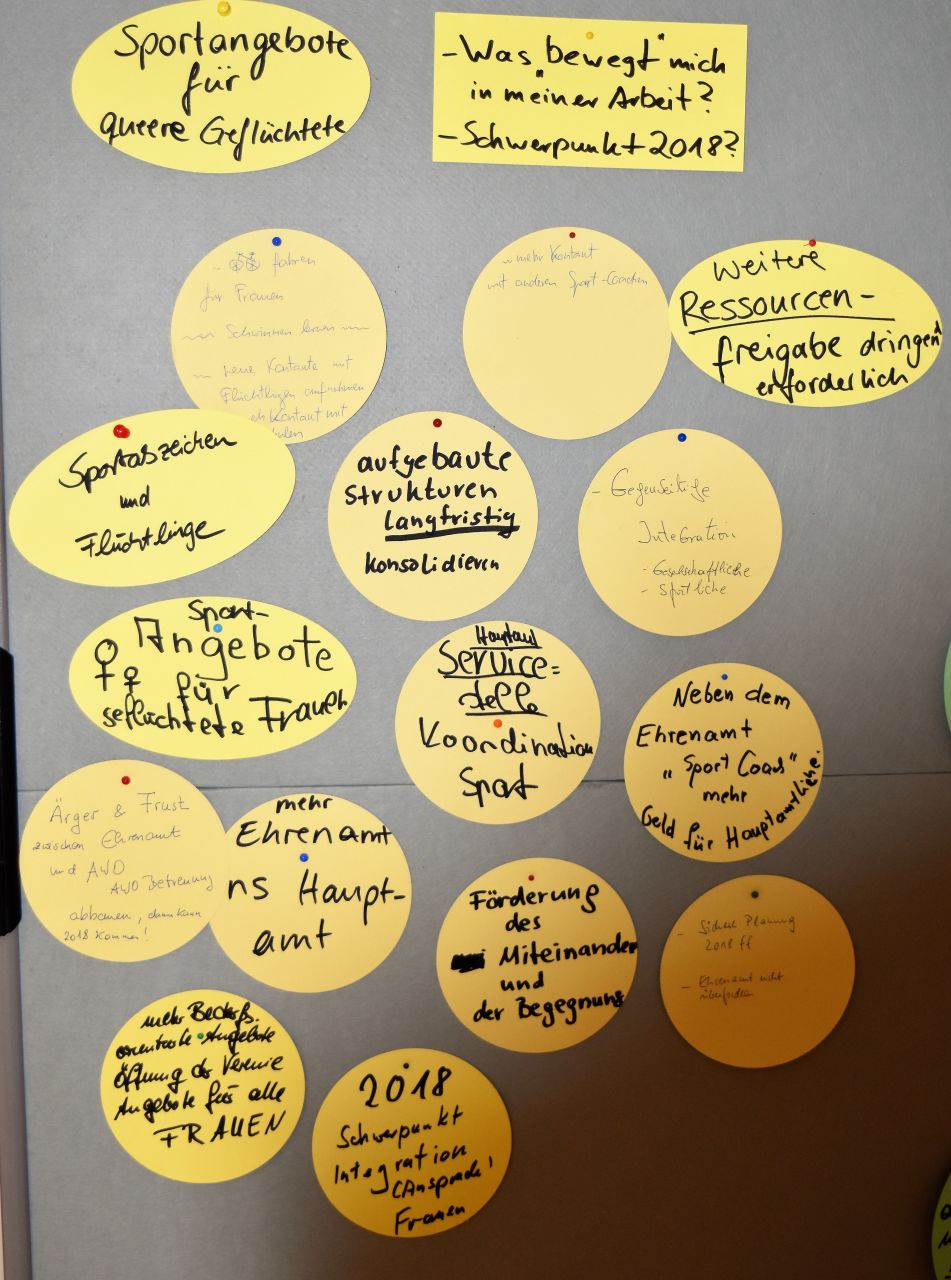 Sportangebote
für
queere Geflüchtete
- Was "bewegt" mich
in meiner Arbeit?
- Schwerpunkt 2018?
- fahren
für Frauen
Schwimmen lernen
neue Kontakte mit
Flüchtlingen aufnehmen
Kontakt mit
- mehr Kontakt
mit anderen Sport-Coaches
Weitere
Ressourcen-
freigabe dringend
erforderlich
Sportabzeichen
und
Flüchtlinge
aufgebaute
Strukturen
langfristig
konsolidieren
- Gegenseitige
Integration
- Gesellschaftliche
- Sportliche
Sport-
Angebote
♀♀ für
geflüchtete Frauen
Hauptamt
SERVICE=
stelle
Koordination
Sport
Neben dem
Ehrenamt
"Sport Coach"
mehr
Geld für Hauptamtliche.
Ärger & Frust
zwischen Ehrenamt
und AWO
AWO Betreuung
abbauen, dann kann
2018 kommen!
mehr
Ehrenamt
ns Haupt-
amt
Förderung
des
Miteinander
und
der Begegnung
- Planung
2018 ff
- Ehrenamt nicht
überfordern
mehr Bedarfs.
orientierte Angebote
Öffnung der Vereine
Angebote für alle
FRAUEN
2018
Schwerpunkt
Integration
(Ansprache!
Frauen